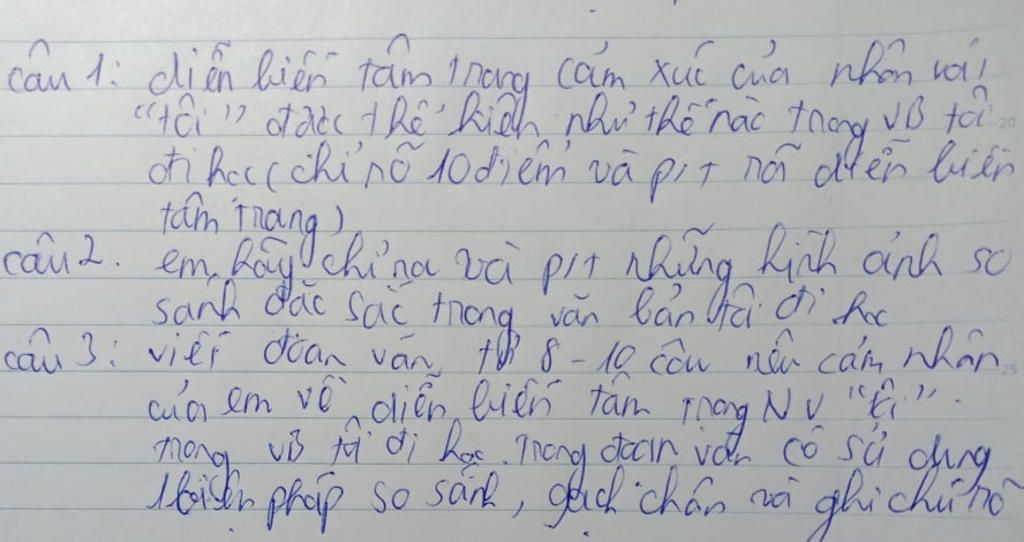 câu 1: diễn biến tâm trang cảm xúc của nhân vật
"tôi" được thể hiện như thế nào trong VB tôi
đi học (chỉ rõ 10 điểm và p/t rõ diễn biến
tâm trang)
câu 2. em hãy chỉ ra và p/t những hình ảnh so
sánh đặc sắc trong văn bản tôi đi học
câu 3: viết đoan văn từ 8 - 10 câu nêu cảm nhân
của em về diễn biến tâm trong NV "tôi".
trong VB tôi đi học. trong đoan văn có sử dụng
1 biện pháp so sánh, gạch chân và ghi chú rõ